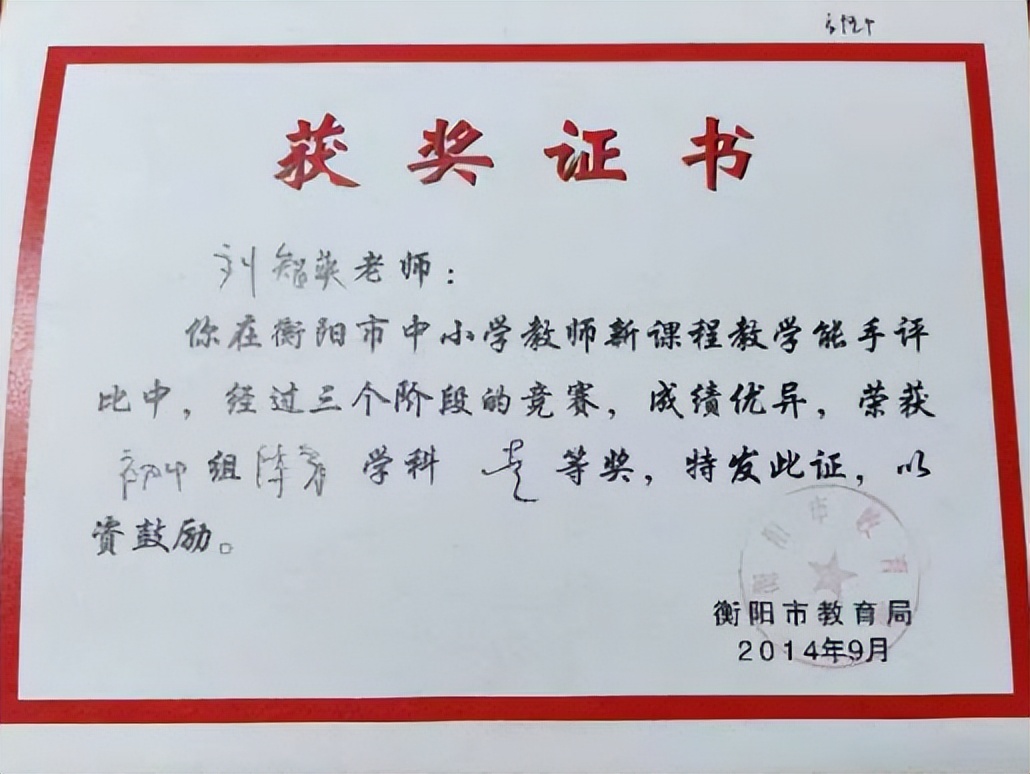 获奖证书
刘智英老师：
你在衡阳市中小学教师新课程教学能手评
比中，经过三个阶段的竞赛，成绩优异，荣获
初中组体育学科壹等奖，特发此证，以
资鼓励。
衡阳市教育局
衡阳市教育局
2014年9月